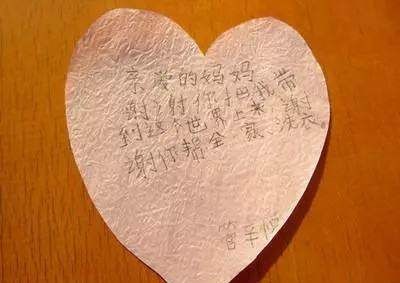 亲爱的妈妈
谢谢你把我带
到这个世界上来 謝
謝你帮全家洗衣。
管